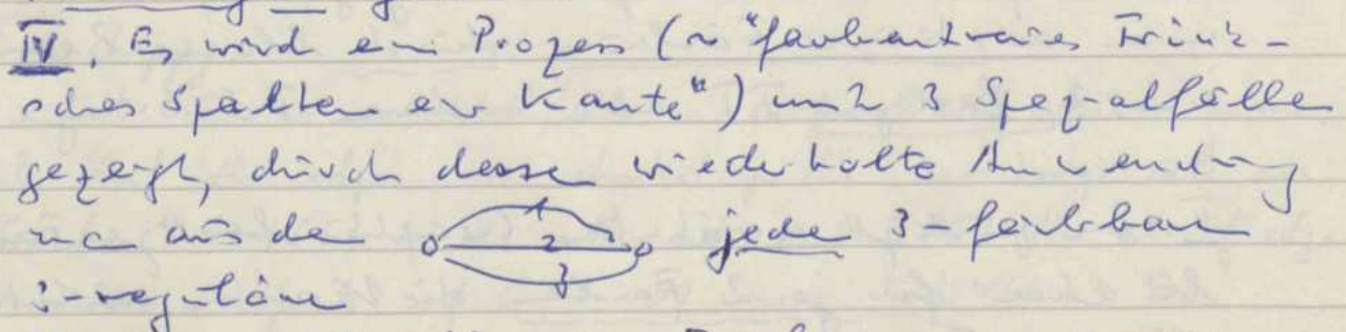 IV. Es wird ein Prozess (~ "farbentreues Frink-
sches Spalten einer Kante") und 3 Spezialfälle
gezeigt, durch dessen wiederholte Anwendung
man aus dem 1 2 3 jede 3-färbbare
3-reguläre